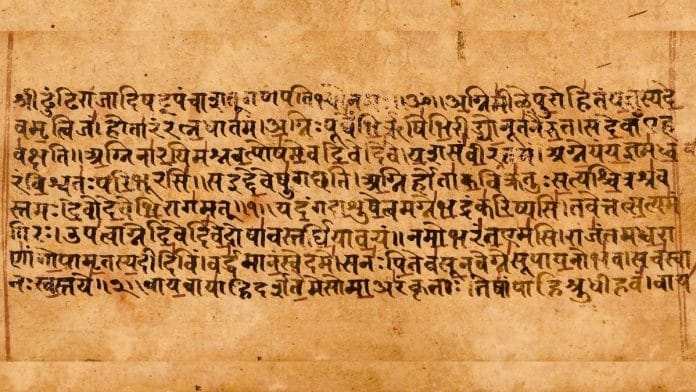 श्रीढुंढिराजादिषट्पंचाशद्गणपतिभ्योनमः॥ॐ॥अग्निमीळेपुरोहितंयज्ञस्यदे
वमृत्विजं।होतारंरत्नधातमं।अग्निःपूर्वेभिर्ऋषिभिरीड्योनूतनैरुत।सदेवाँएह
वक्षति॥अग्निनारयिमश्नवत्पोषमेवदिवेदिवे।यशसंवीरवत्तमं।अग्नेयंयज्ञमध्व
रंविश्वतःपरिभूरसि॥सइद्देवेषुगच्छति।अग्निर्होताकविक्रतुःसत्यश्चित्रश्रव
स्तमः।देवोदेवेभिरागमत्॥१॥यदंगदाशुषेत्वमग्नेभद्रंकरिष्यसि।तवेत्तत्सत्यमं
गिरः।उपत्वाग्नेदिवेदिवेदोषावस्तर्धियावयं॥नमोभरंतएमसि।राजंतमध्वरा
णांगोपामृतस्यदीदिविं।वर्द्धमानंस्वेदमे।सनःपितेवसूनवेग्नेसूपायनोभव।सचस्वा
नःस्वस्तये॥२॥वायवायाहिदर्शतेमेसोमाअरंकृताः।तेषांपाहिश्रुधीहवं।वाय